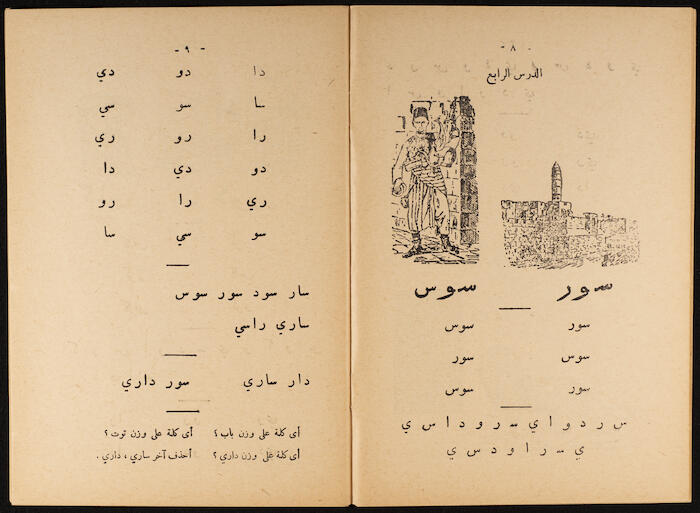 - ٨ -
الدرس الرابع
سور سوس
سور سوس
سوس سور
سور سوس
س ر د و ا ي س ر و د ا س ي
ي س ر ا و د س ي
- ٩ -
دا دو دي
سا سو سي
را رو ري
دو دي دا
ري را رو
سو سي سا
سار سود سور سوس
ساري راسي
دار ساري سور داري
أى كلة على وزن باب ؟ أى كلة على وزن توت ؟
أى كلة على وزن داري ؟ أحذف آخر ساري ، داري .